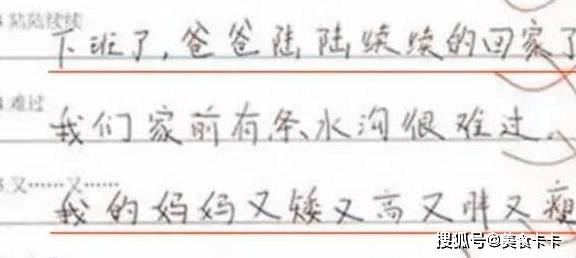 陆陆续续
下班了,爸爸陆陆续续的回家了
难过
我们家前有条水沟很难过。
5.又……又……
我的妈妈又矮又高又胖又瘦
搜狐号@美食卡卡